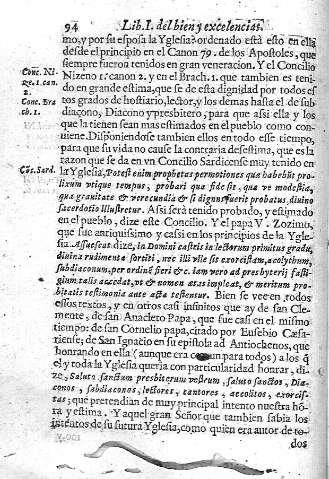 94 Lib. I. del bien y excelencias.
mo, y por su esposa la Yglesia? ordenado està esto en ella
desde el principio en el Canon 79. de los Apostoles, que
siempre fueron tenidos en gran veneracion. Y el Concilio
Conc. Ni-
Nizeno 1. canon 2. y en el Brach. 1. que tambien es teni-
ge. 1. can.
do en grande estima, que se de esta dignidad por todos es
2.
tos grados de hostiario, lector, y los demas hasta el de sub
Conc. Bra
diacono, Diacono y presbitero, para que assi ella y los
ch. 1.
que la tienen sean mas estimados en el pueblo como con
uiene. Disponiendose tambien ellos en todo esse tiempo,
para que su vida no cause la contraria desestima, que es la
razon que se da en vn Concilio Sardicense muy tenido en
Cōc. Sard.
la Yglesia, Potest enim prophetas permotiones qua habebit pro-
lixum vtique tempus, probari qua fide sit, qua ve modestia,
qua grauitate & verecundia & si dignus fuerit probatus, diuino
sacerdotio illustretur. Assi serà tenido probado, y estimado
en el pueblo, dize este Concilio. Y el papa V. Zozimus,
que fue antiquissimo y casi en los principios de la Ygle
sia Assuescat, dize, in Domini castris in lectorum primitus gradu,
diuina rudimenta sortiti, nec illi vile sit exorcistam, acolythum,
subdiaconum, per ordinē fieri & c. iam vero ad presbyterij fasti-
gium talis accedat, vt & nomen ætas impleat, & meritum pro-
bitatis testimonia ante acta testentur. Bien se vee en todos
essos textos, y en otros casi infinitos que ay de san Cle-
mente, de san Anacleto Papa, que fue casi en el mismo
tiempo: de san Cornelio papa, citado por Eusebio Cæsa-
riense; de San Ignacio en su epistola ad Antiochenos, que
honrando en ella (aunque era comun para todos) a los q̃
el y toda la Yglesia queria con particularidad honrar, di-
ze, Saluto sanctum presbiterum vestrum, saluto sanctos, Dia-
conos, subdiaconos, lectores, cantores, acolitos, exorcis-
tas; que pretendian de muy principal intento nuestra hō-
ra y estima. Y aquel gran Señor que tambien sabia los
intentos de su futura Yglesia, como quien era autor de to-
dos